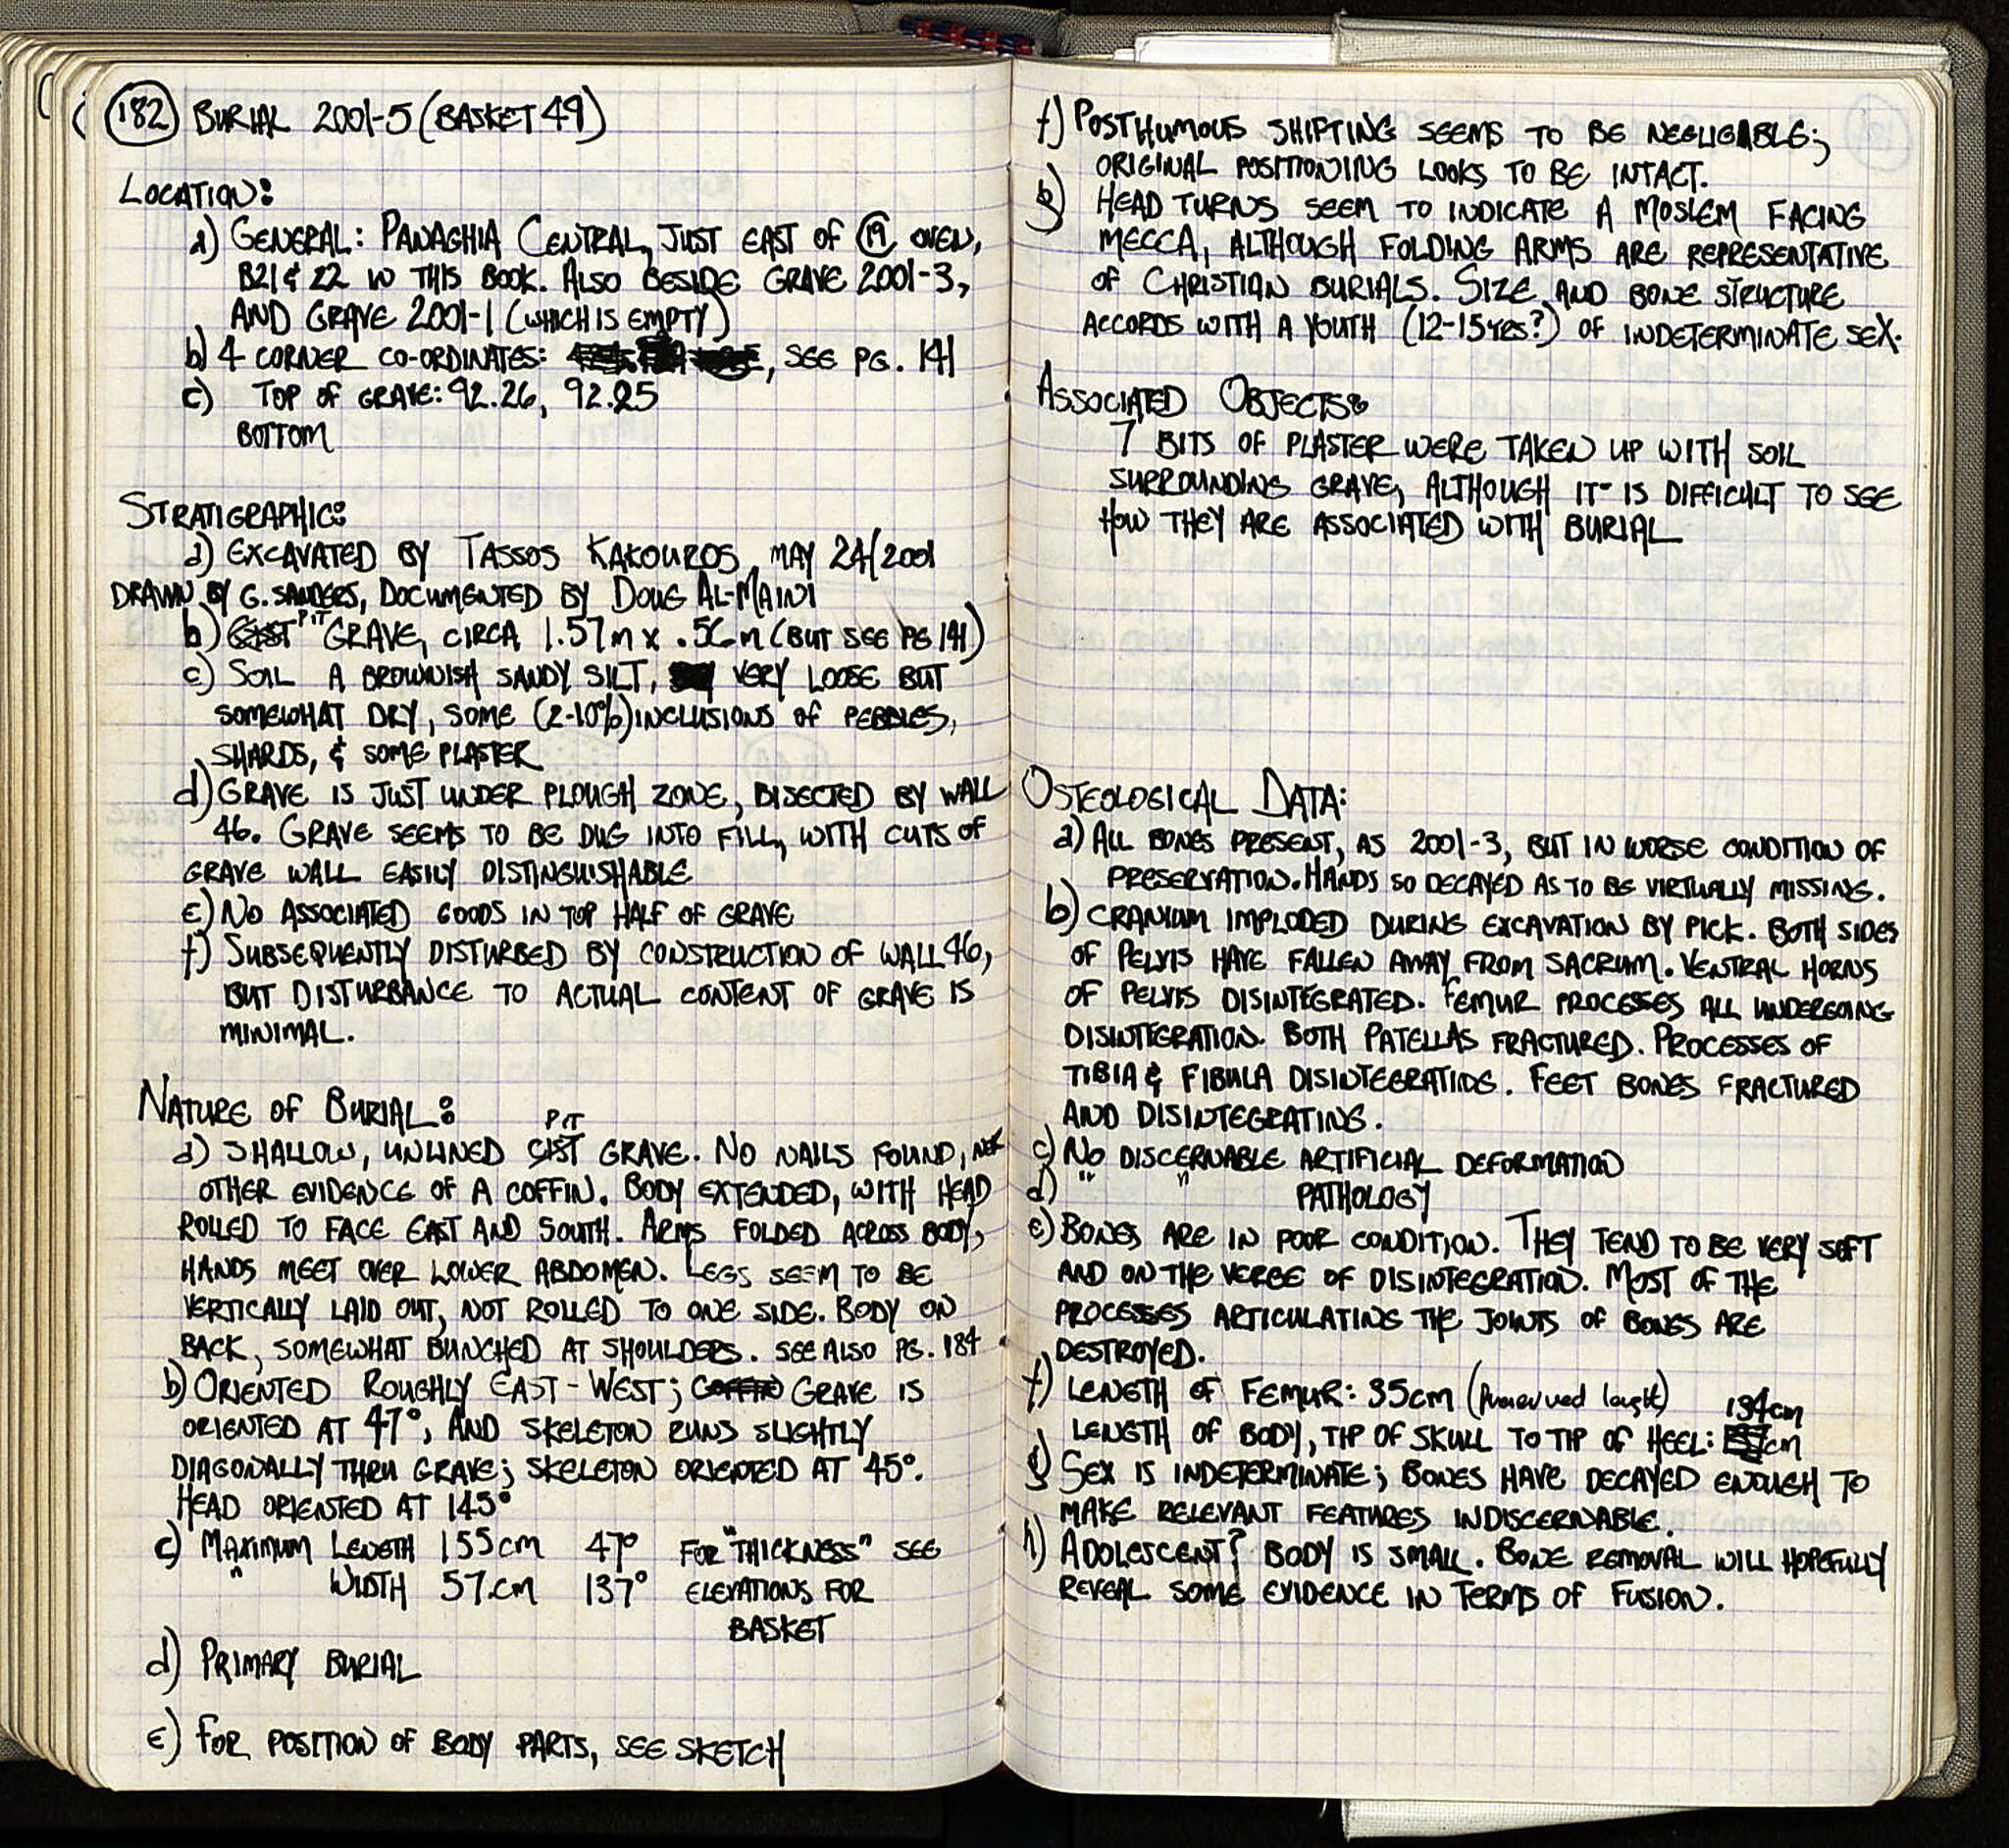 182 BURIAL 2001-5 (BASKET 49)
LOCATION:
a) GENERAL: PANAGHIA CENTRAL, JUST EAST OF 19 OVEN,
B21 & 22 IN THIS BOOK. ALSO BESIDE GRAVE 2001-3,
AND GRAVE 2001-1 (WHICH IS EMPTY)
b) 4 CORNER CO-ORDINATES: , SEE PG. 141
c) TOP OF GRAVE: 92.26, 92.25
BOTTOM
STRATIGRAPHIC:
a) EXCAVATED BY TASSOS KAKOUROS, MAY 24/2001
DRAWN BY G. SANDERS, DOCUMENTED BY DOUG AL-MAINI
b) CIST PIT GRAVE, CIRCA 1.57m x .56m (BUT SEE PG 141)
c) SOIL A BROWNISH SANDY SILT, VERY LOOSE BUT
SOMEWHAT DRY, SOME (2-10%) INCLUSIONS OF PEBBLES,
SHARDS, & SOME PLASTER
d) GRAVE IS JUST UNDER PLOUGH ZONE, BISECTED BY WALL
46. GRAVE SEEMS TO BE DUG INTO FILL, WITH CUTS OF
GRAVE WALL EASILY DISTINGUISHABLE
e) NO ASSOCIATED GOODS IN TOP HALF OF GRAVE
f) SUBSEQUENTLY DISTURBED BY CONSTRUCTION OF WALL 46,
BUT DISTURBANCE TO ACTUAL CONTENT OF GRAVE IS
MINIMAL.
NATURE OF BURIAL:
a) SHALLOW, UNLINED CIST PIT GRAVE. NO NAILS FOUND,
OTHER EVIDENCE OF A COFFIN. BODY EXTENDED, WITH HEAD
ROLLED TO FACE EAST AND SOUTH. ARMS FOLDED ACROSS BODY,
HANDS MEET OVER LOWER ABDOMEN. LEGS SEEM TO BE
VERTICALLY LAID OUT, NOT ROLLED TO ONE SIDE. BODY ON
BACK, SOMEWHAT BUNCHED AT SHOULDERS. SEE ALSO PG. 184
b) ORIENTED ROUGHLY EAST-WEST; COFFIN GRAVE IS
ORIENTED AT 47°, AND SKELETON RUNS SLIGHTLY
DIAGONALLY THRU GRAVE; SKELETON ORIENTED AT 45°.
HEAD ORIENTED AT 145°
c) MAXIMUM LENGTH 155cm 47° FOR "THICKNESS" SEE
" WIDTH 57.cm 137° ELEVATIONS FOR
BASKET
d) PRIMARY BURIAL
e) FOR POSITION OF BODY PARTS, SEE SKETCH
f) POSTHUMOUS SHIFTING SEEMS TO BE NEGLIGABLE;
ORIGINAL POSITIONING LOOKS TO BE INTACT.
g) HEAD TURNS SEEM TO INDICATE A MOSLEM FACING
MECCA, ALTHOUGH FOLDING ARMS ARE REPRESENTATIVE
OF CHRISTIAN BURIALS. SIZE AND BONE STRUCTURE
ACCORDS WITH A YOUTH (12-15 YRS?) OF INDETERMINATE SEX.
ASSOCIATED OBJECTS:
7 BITS OF PLASTER WERE TAKEN UP WITH SOIL
SURROUNDING GRAVE, ALTHOUGH IT IS DIFFICULT TO SEE
HOW THEY ARE ASSOCIATED WITH BURIAL
OSTEOLOGICAL DATA:
a) ALL BONES PRESENT, AS 2001-3, BUT IN WORSE CONDITION OF
PRESERVATION. HANDS SO DECAYED AS TO BE VIRTUALLY MISSING.
b) CRANIUM IMPLODED DURING EXCAVATION BY PICK. BOTH SIDES
OF PELVIS HAVE FALLEN AWAY FROM SACRUM. VENTRAL HORNS
OF PELVIS DISINTEGRATED. FEMUR PROCESSES ALL UNDERGOING
DISINTEGRATION. BOTH PATELLAS FRACTURED. PROCESSES OF
TIBIA & FIBULA DISINTEGRATING. FEET BONES FRACTURED
AND DISINTEGRATING.
c) NO DISCERNABLE ARTIFICIAL DEFORMATION
d) " " PATHOLOGY
e) BONES ARE IN POOR CONDITION. THEY TEND TO BE VERY SOFT
AND ON THE VERGE OF DISINTEGRATION. MOST OF THE
PROCESSES ARTICULATING THE JOINTS OF BONES ARE
DESTROYED.
f) LENGTH OF FEMUR: 35cm (Preserved length)
LENGTH OF BODY, TIP OF SKULL TO TIP OF HEEL: 134cm cm
g) SEX IS INDETERMINATE; BONES HAVE DECAYED ENOUGH TO
MAKE RELEVANT FEATURES INDISCERNABLE.
h) ADOLESCENT? BODY IS SMALL. BONE REMOVAL WILL HOPEFULLY
REVEAL SOME EVIDENCE IN TERMS OF FUSION.